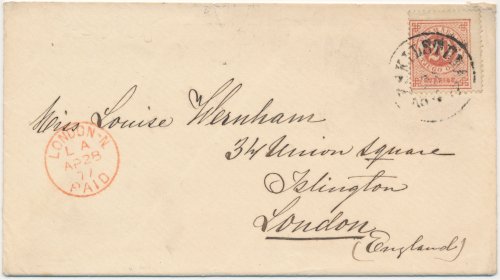 Miss Louise Wernham
34 Union Square
Islington
London
(England)
LONDON·N.
L A
AP 28
77
PAID